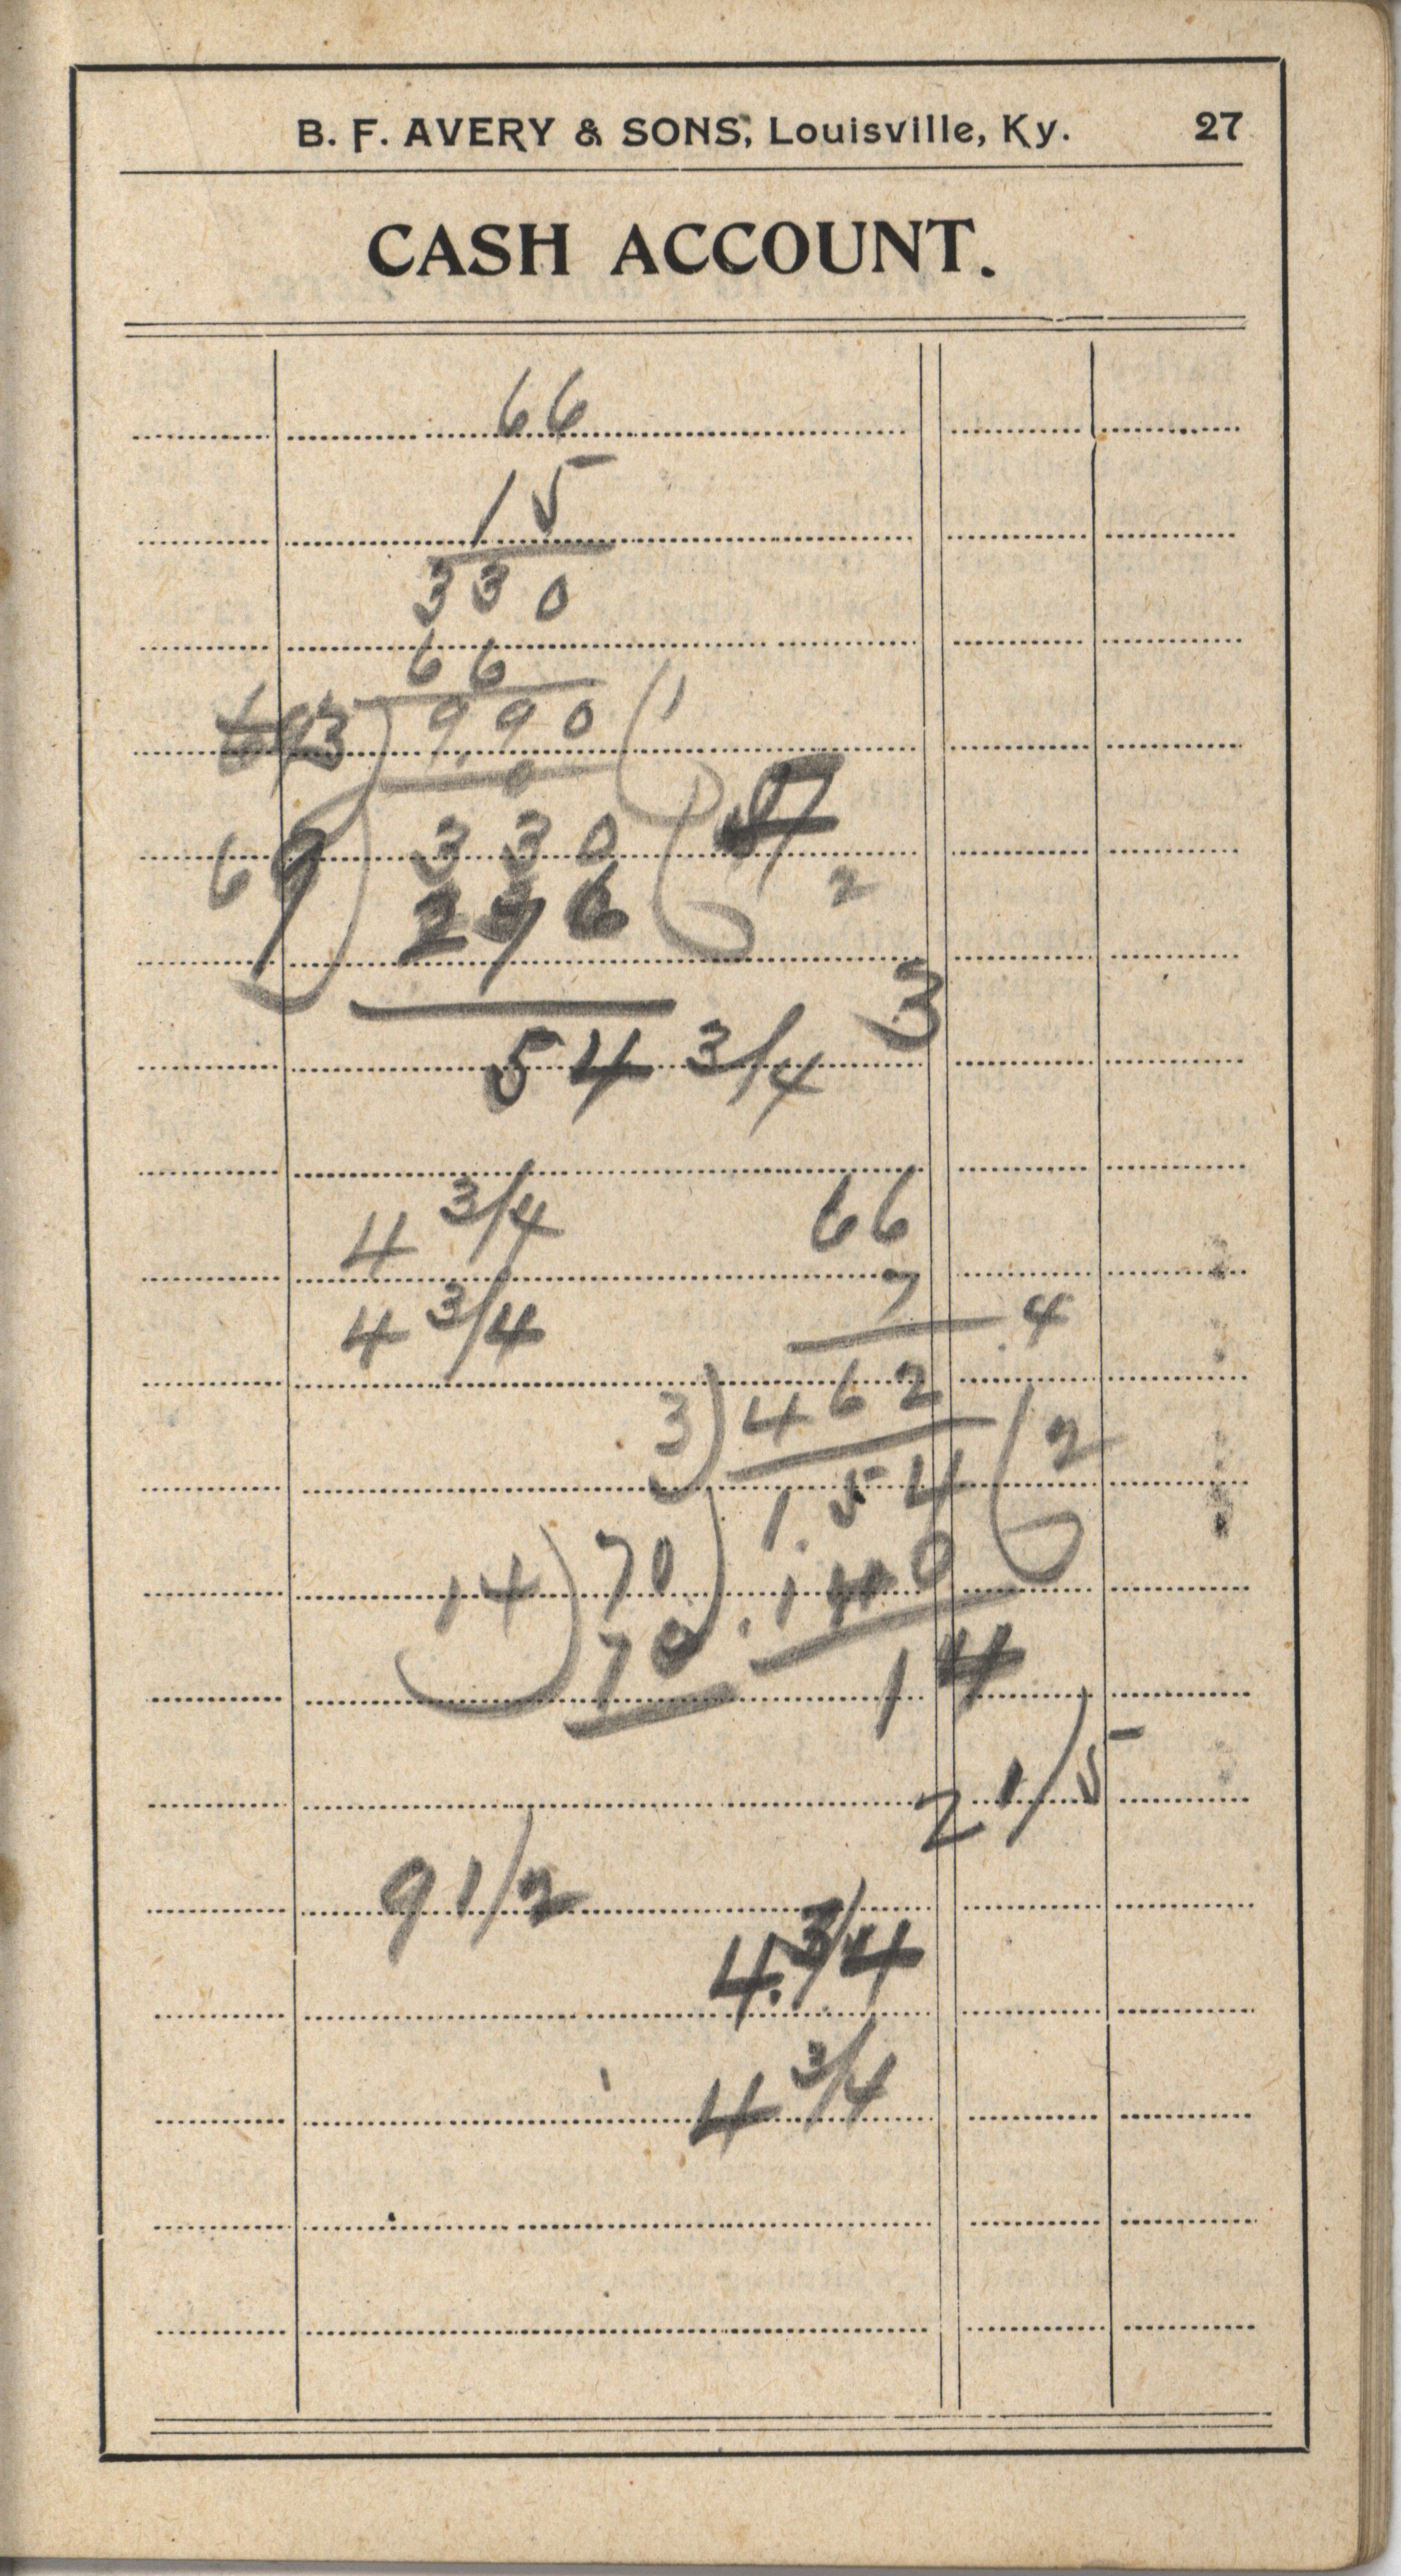 B. F. AVERY & SONS, Louisville, Ky. 27
CASH ACCOUNT.
66
15
330
66
990 (1
0
69) 330 (
2
276
3
54 3/4
4 3/4 66
4 3/4 7 4
3) 462
1.54 ( 2
14) 70) 140
70
14
2 1/5
9 1/2
4 3/4
4 3/4